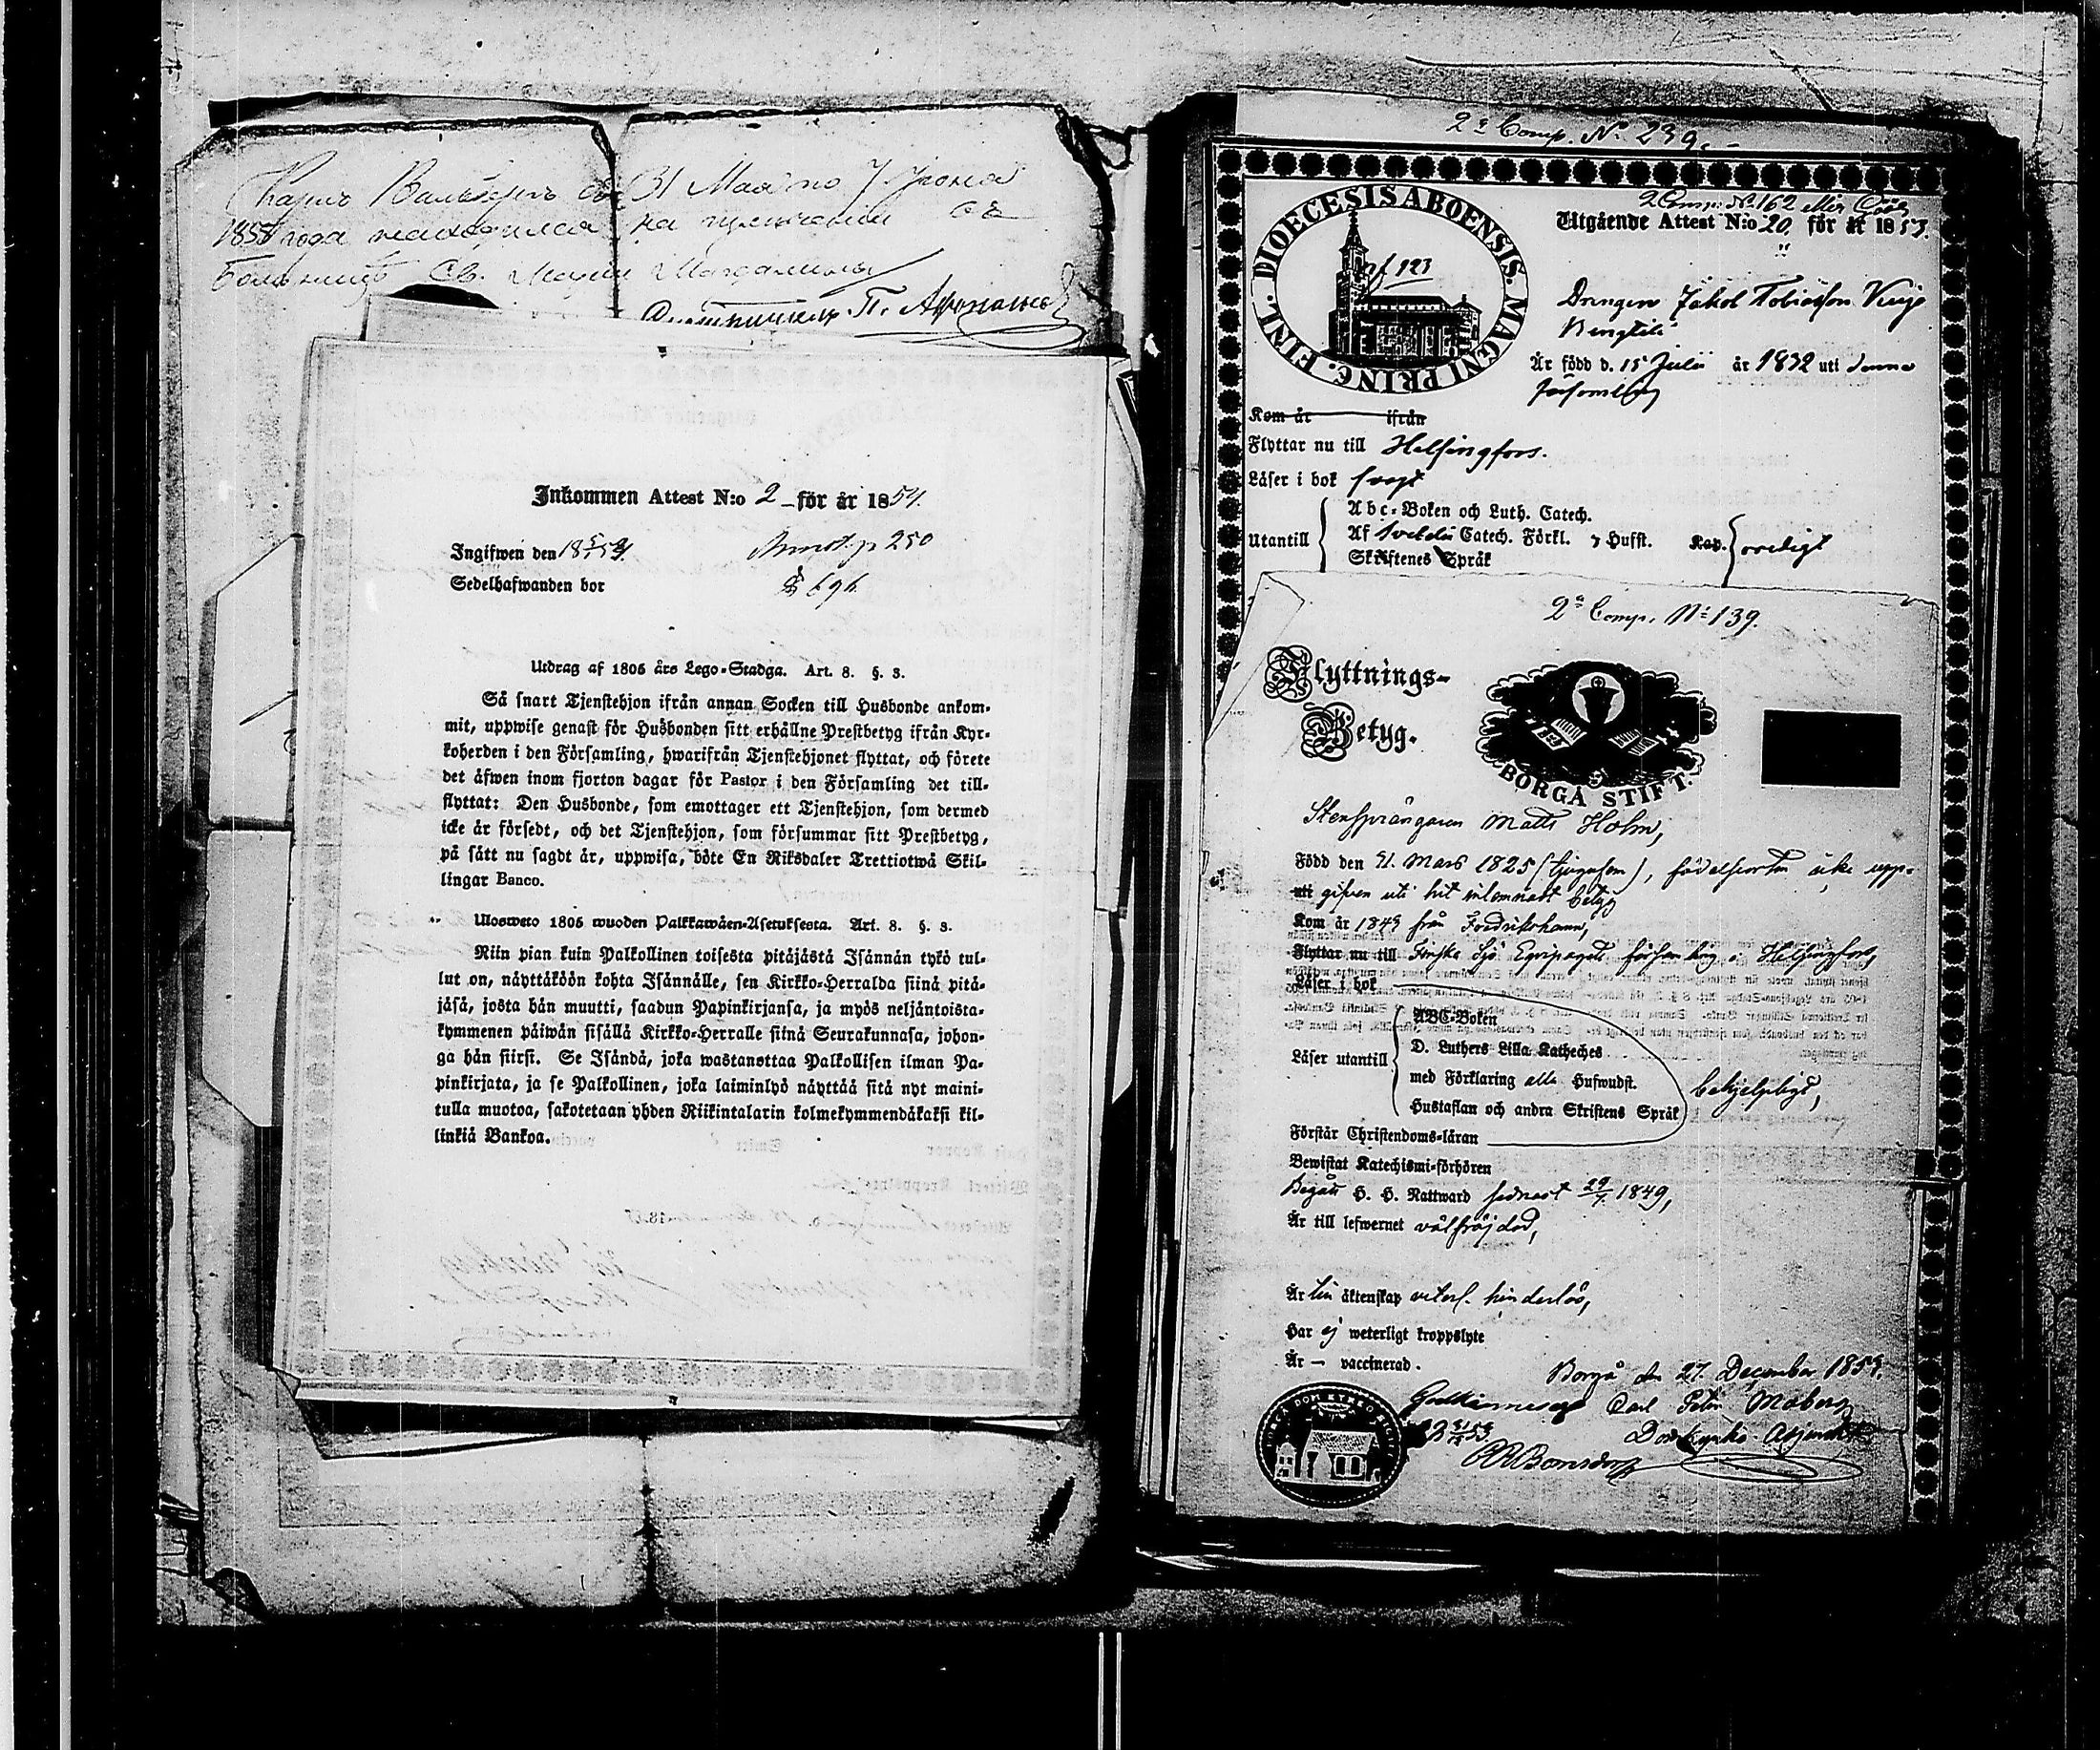 31 Мая по 7 Іюня
1858 года находился на
Св. Маріи Магдалины
Inkommen Attest N:o 2 för år 1854.
Ingifwen den 18 5/1 54. Annot. p 250
Sedelhafwanden bor 696
Utdrag af 1805 års Lego-Stadga. Art. 8. §. 3.
Så snart Tjenstehjon ifrån annan Socken till Husbonde ankom-
mit, uppwise genast för Husbonden sitt erhållne Prestbetyg ifrån Kyr-
koherden i den Församling, hwarifrån Tjenstehjonet flyttat, och förete
det äfwen inom fjorton dagar för Pastor i den Församling det till-
flyttat: Den Husbonde, som emottager ett Tjenstehjon, som dermed
icke är försedt, och det Tjenstehjon, som försummar sitt Prestbetyg,
på sätt nu sagdt är, uppwisa, böte En Riksdaler Trettiotwå Skil-
lingar Banco.
Ulosweto 1805 wuoden Palkkawäen-Asetuksesta. Art. 8. §. 3.
Niin pian kuin Palkollinen toisesta pitäjästä Isännän tykö tul-
lut on, näyttäköön kohta Isännälle, sen Kirkko-Herralda siinä pitä-
jäsä, josta hän muutti, saadun Papinkirjansa, ja myös neljäntoista-
kymmenen päiwän sisällä Kirkko-Herralle siinä Seurakunnasa, johon-
ga hän siirsi. Se Isändä, joka wastanottaa Palkollisen ilman Pa-
pinkirjata, ja se Palkollinen, joka laiminlyö näyttää sitä nyt maini-
tulla muotoa, sakotetaan yhden Riikintalarin kolmekymmendäkaksi kil-
linkiä Bankoa.
2a Comp. No 239.
2 Comp: No 162
DIOECESIS ABOENSIS. MAGNI PRINC. FINL.
Utgående Attest N:o 20. för år 1853.
Drengen Jakob Tobiasson
Är född d. 15 Julii år 1832 uti denna
församling
Kom år ifrån
Flyttar nu till Helsingfors.
Läser i bok svagt
Utantill
Abc-Boken och Luth. Catech.
Af Svebelii Catech. Förkl. Hufst. Kap.
Skriftenes Språk
oredigt
2a Comp. No 139.
Flyttnings-
Betyg.
BORGÅ STIFT.
Stensprängaren Matts Holm,
Född den 21. Mars 1825 (tjugufem), födelseorten icke upp-
uti gifven uti hit inlemnadt betyg
Kom år 1843 från Fredrikshamn,
Flyttar nu till Finska Sjö Equipagets församling i Helsingfors,
Läser i bok
Läser utantill
ABC-Boken
D. Luthers Lilla Katheches
med Förklaring alla Hufwudst.
Hustaflan och andra Skriftens Språk
behjelpligt,
Förstår Christendoms-läran
Bewistat Katechismi-förhören
Begått H. H. Nattward sednast 29/7. 1849,
Är till lefwernet välfräjdad,
Är till äktenskap veterl. hinderlös,
Har ej weterligt kroppslyte
Är — vaccinerad.
Borgå den 27. December 1853.
Carl Petter Moberg
Domkyrko-Adjunkt